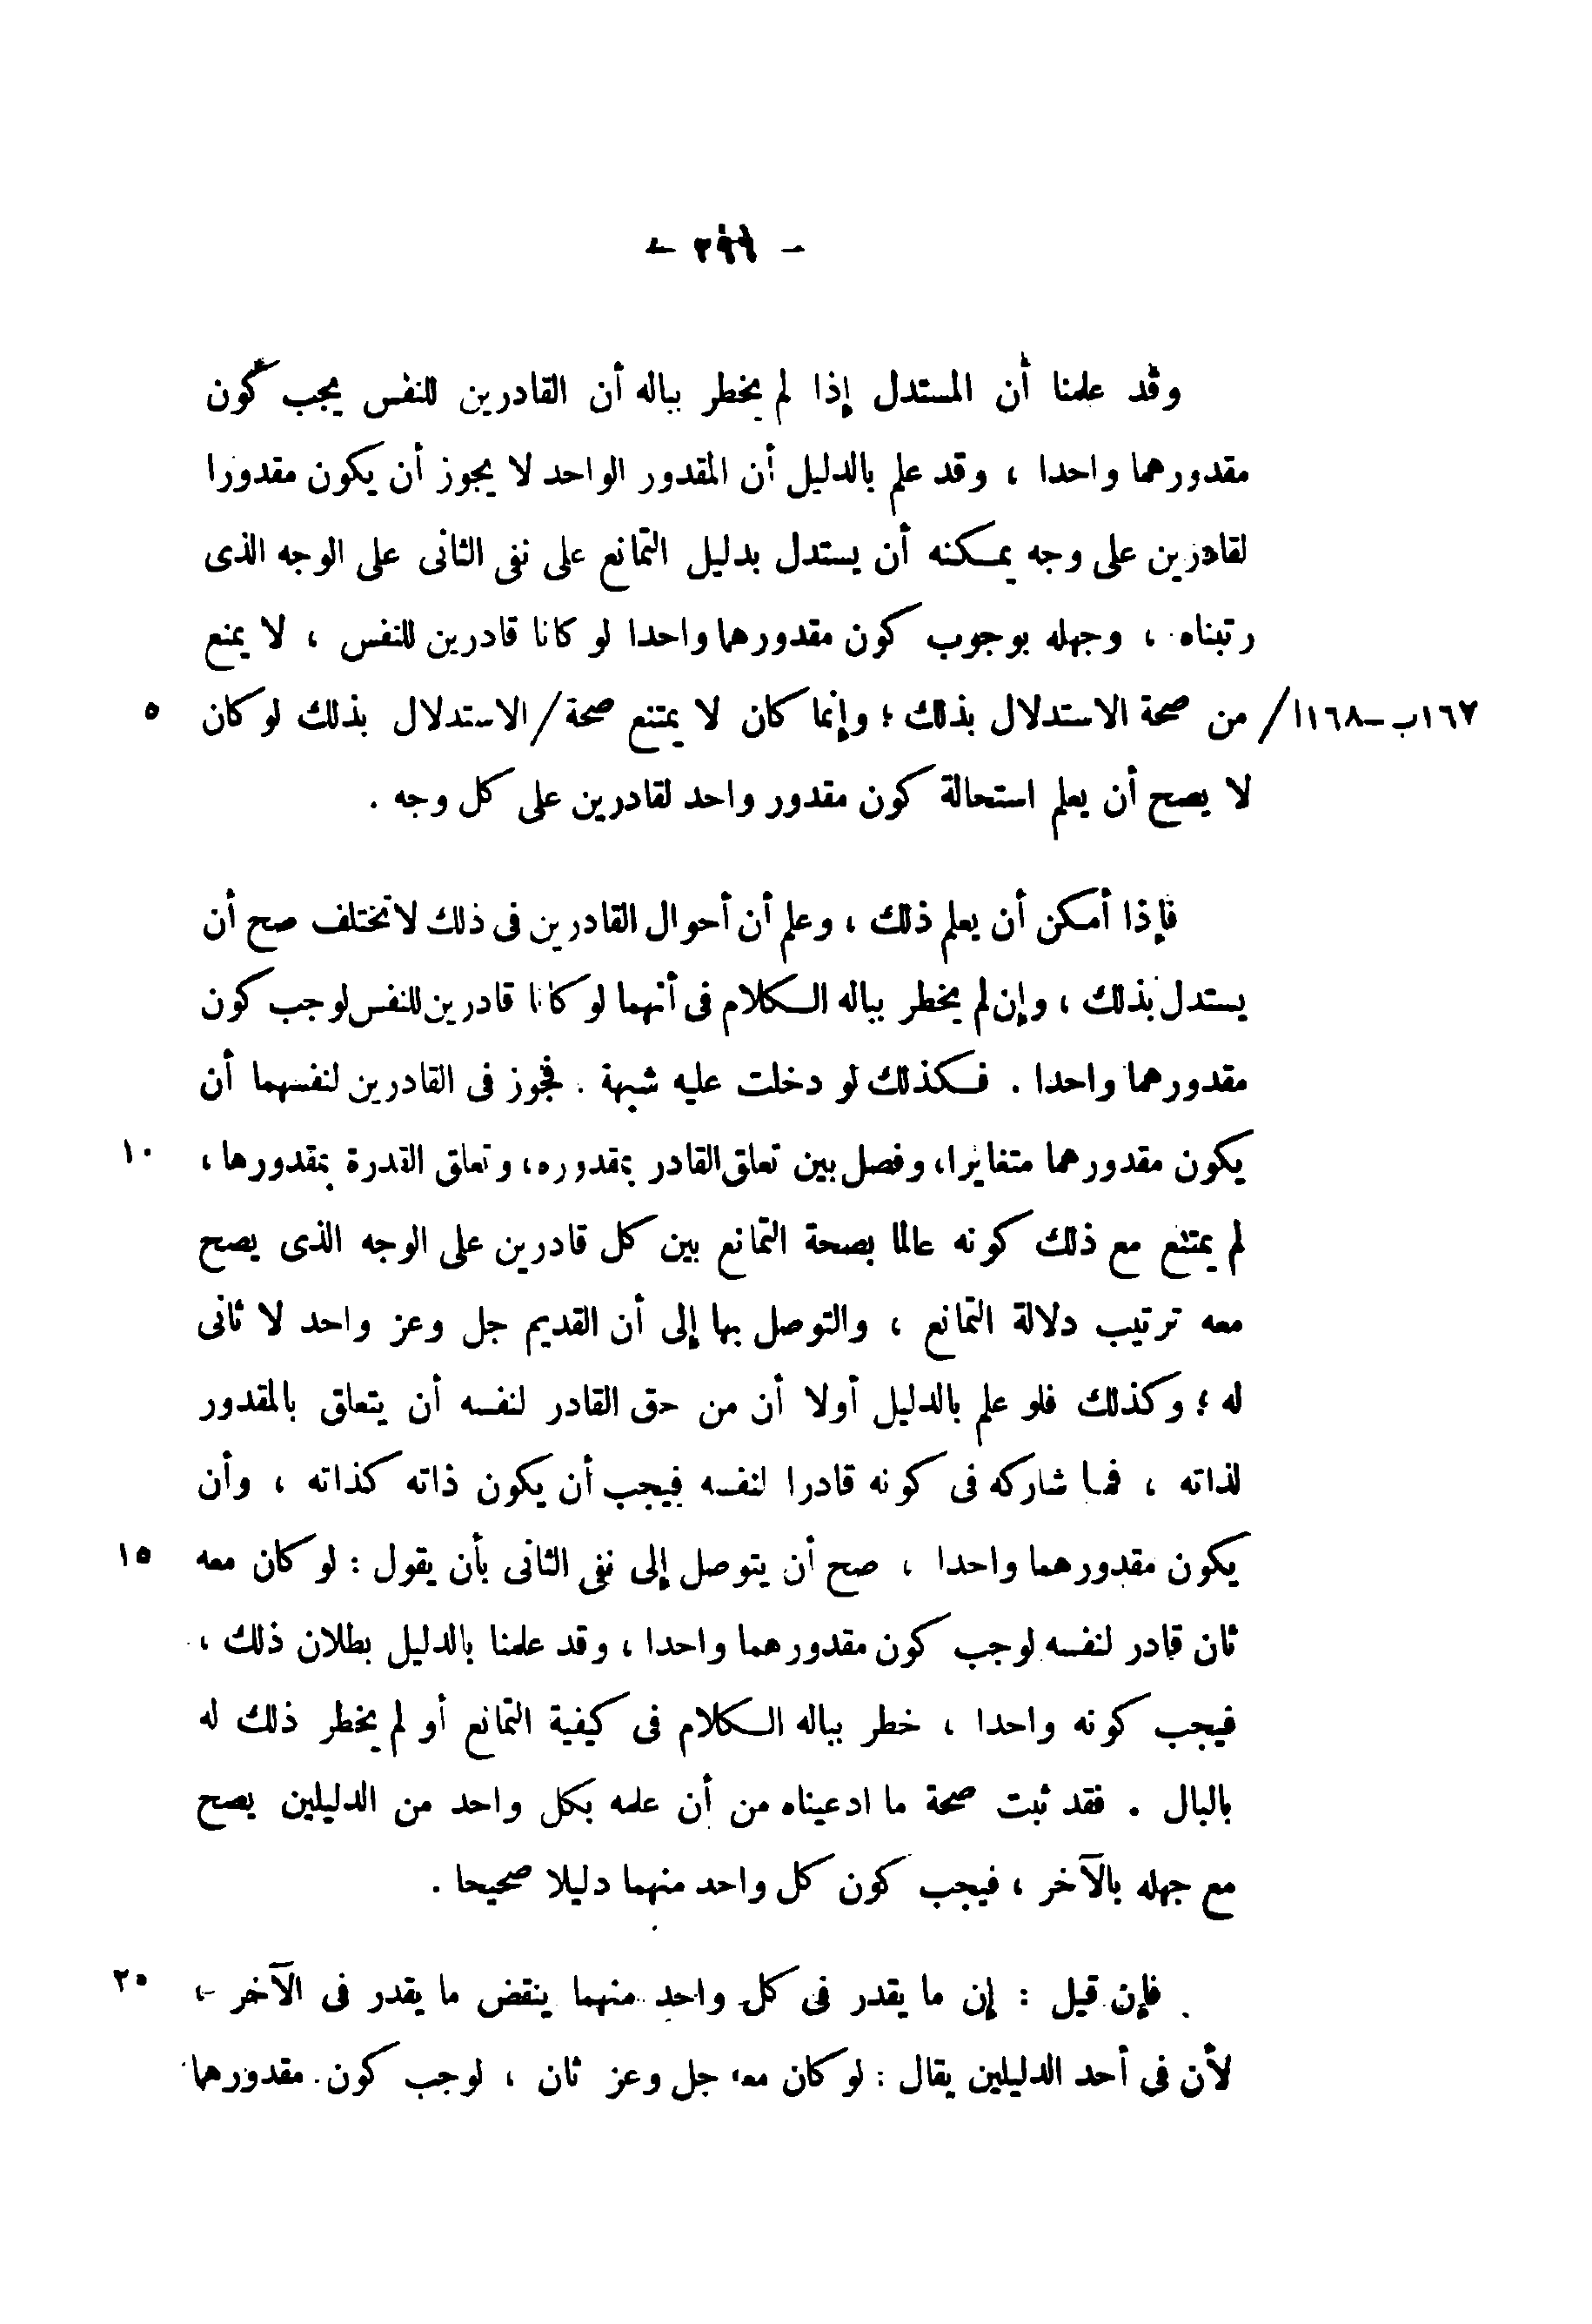 وقد علمنا أن المستدل إذا لم يخطر بباله أن القادرين للنفس يجب كون
مقدورهما واحدا ، وقد علم بالدليل أن المقدور الواحد لا يجوز أن يكون مقدورا
لقادرين على وجه يمكنه أن يستدل بدليل التمانع على نفى الثانى على الوجه الذى
رتبناه ، وجهله بوجوب كون مقدورهما واحدا لو كانا قادرين للنفس ، لا يمنع
١٦٧ب-١٦٨ا/ من صحة الاستدلال بذلك ؛ وإنما كان لا يمتنع صحة/الاستدلال بذلك لو كان ٥
لا يصح أن يعلم استحالة كون مقدور واحد لقادرين على كل وجه .
فإذا أمكن أن يعلم ذلك ، وعلم أن أحوال القادرين فى ذلك لا تختلف صح أن
يستدل بذلك ، وإن لم يخطر بباله الكلام فى أنهما لو كانا قادرين للنفس لوجب كون
مقدورهما واحدا . فكذلك لو دخلت عليه شبهة . فجوز فى القادرين لنفسهما أن
يكون مقدورهما متغايرا، وفصل بين تعلق القادر بمقدوره، وتعلق القدرة بمقدورها ، ١٠
لم يمتنع مع ذلك كونه عالما بصحة التمانع بين كل قادرين على الوجه الذى يصح
معه ترتيب دلالة التمانع ، والتوصل بها إلى أن القديم جل وعز واحد لا ثانى
له ؛ وكذلك فلو علم بالدليل أولا أن من حق القادر لنفسه أن يتعلق بالمقدور
لذاته ، فما شاركه فى كونه قادرا لنفسه فيجب أن يكون ذاته كذاته ، وأن
يكون مقدورهما واحدا ، صح أن يتوصل إلى نفى الثانى بأن يقول : لو كان معه ١٥
ثان قادر لنفسه لوجب كون مقدورهما واحدا ، وقد علمنا بالدليل بطلان ذلك ،
فيجب كونه واحدا ، خطر بباله الكلام فى كيفية التمانع أو لم يخطر ذلك له
بالبال . فقد ثبت صحة ما ادعيناه من أن علمه بكل واحد من الدليلين يصح
مع جهله بالآخر ، فيجب كون كل واحد منهما دليلا صحيحا .
فإن قيل : إن ما يقدر فى كل واحد منهما ينقض ما يقدر فى الآخر ، ٢٠
لأن فى أحد الدليلين يقال : لو كان معه جل وعز ثان ، لوجب كون مقدورهما